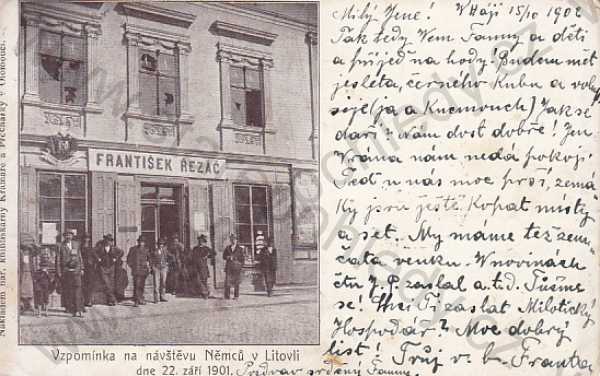 Nákladem nár. knihtiskárny Kramáře a Procházky v Olomouci.
FRANTIŠEK ŘEZÁČ
Vzpomínka na návštěvu Němců v Litovli
dne 22. září 1901.
Pozdrav srdečný Fanny.
Milý Jene! V Háji 15/10 1902
Tak tedy vem Fanny a děti
a přijeď na hody! Budem mět
jesleta, černého Kubu a
Jak se
daří? Nám dost dobře! Jen
Vrána nam nedá pokoji
Teď u nás moc prší, zemá
ky jsou ještě kopat místy
a set. My máme též zem
čata venku. V novinách
čtu J. P. zaslal a.t.d. Těšme
se! Chci Ti zaslat Milotický
Hospodář? Moc dobrý
list. Tvůj v. b. Franta